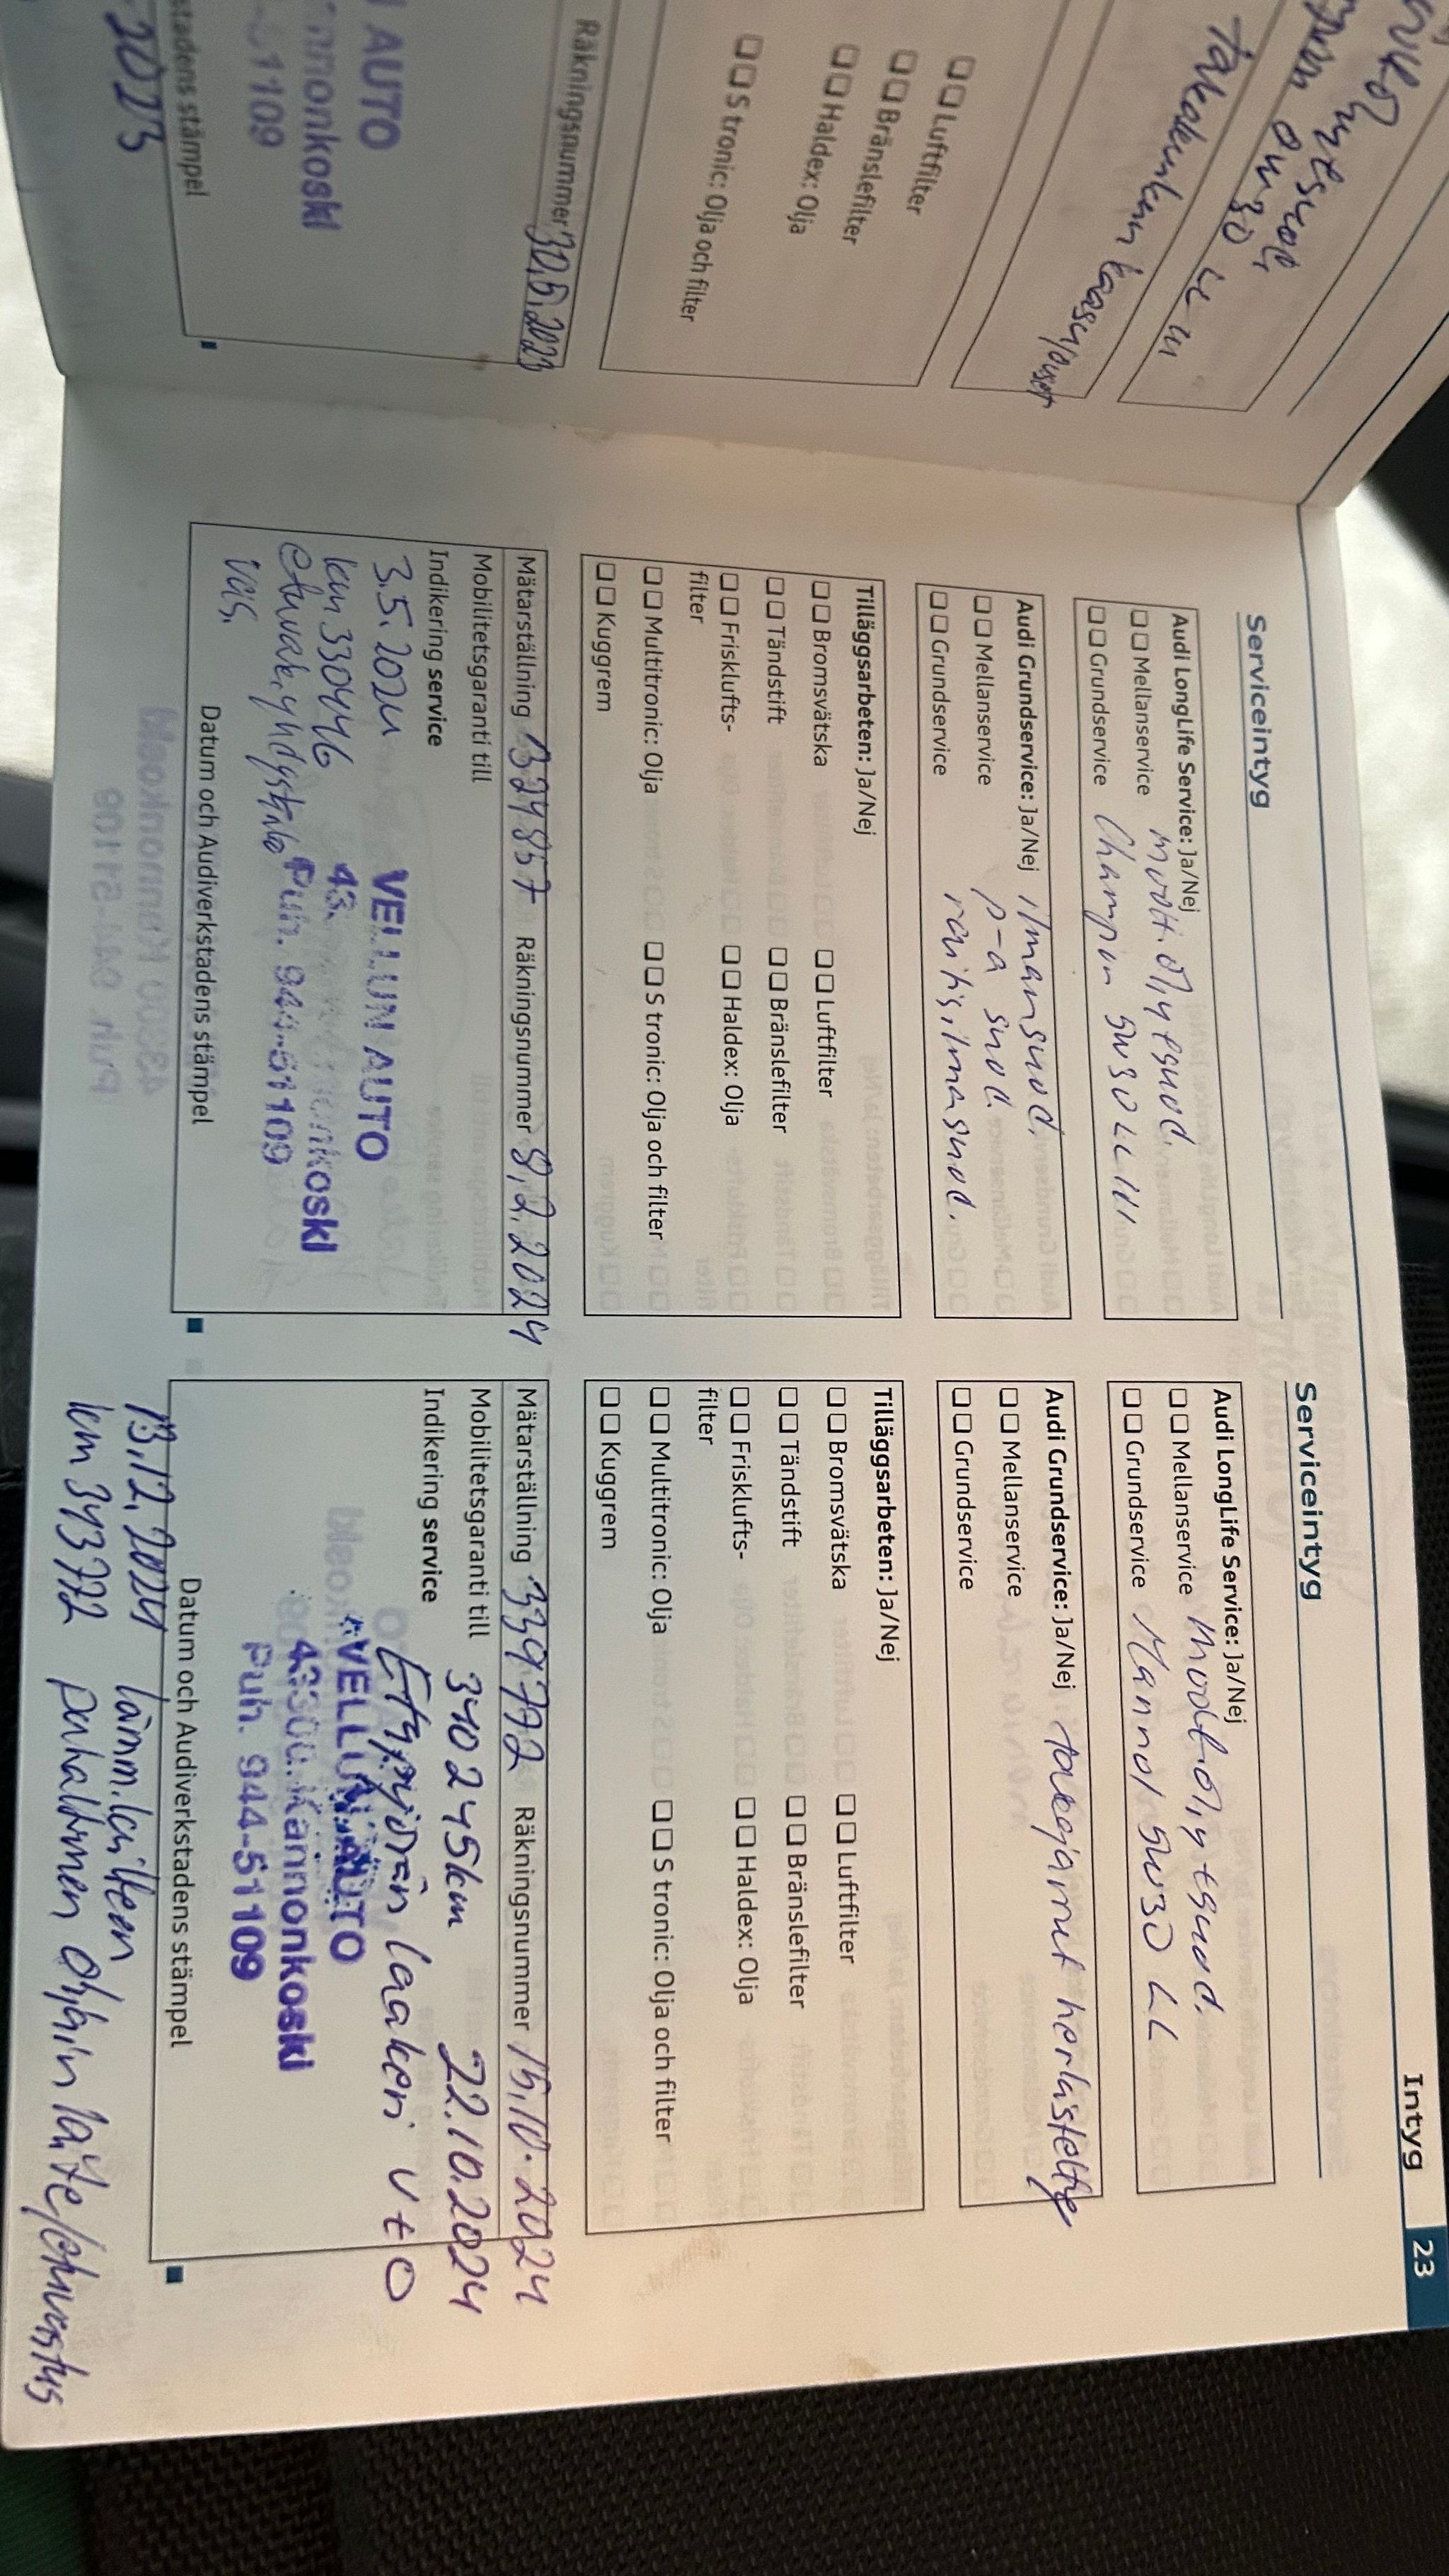 5W30 LL III
Takaluukun kaasujuset
Luftfilter
Bränslefilter
Haldex: Olja
S tronic: Olja och filter
Räkningsnummer 30.6.2023
AUTO
nnonkoski
1109
stadens stämpel
2023
Intyg 23
Serviceintyg
Audi LongLife Service: Ja/Nej
Mellanservice moott.öljy+suod.
Grundservice Champion 5W30 LL III
Audi Grundservice: Ja/Nej ilmansuod.
Mellanservice p-a suod.
Grundservice raitis.ilmasuod.
Tilläggsarbeten: Ja/Nej
Bromsvätska Luftfilter
Tändstift Bränslefilter
Frisklufts-filter Haldex: Olja
Multitronic: Olja S tronic: Olja och filter
Kuggrem
Mätarställning 327857 Räkningsnummer 8.2.2024
Mobilitetsgaranti till
Indikering service
3.5.2024
km 330446
etuvak.yhdystanko
vas.
VELLUN AUTO
43. nonkoski
Puh. 944-51109
Datum och Audiverkstadens stämpel
Serviceintyg
Audi LongLife Service: Ja/Nej
Mellanservice moott.öljy+suod.
Grundservice Mannol 5W30 LL
Audi Grundservice: Ja/Nej takajarrut herkistelty
Mellanservice
Grundservice
Tilläggsarbeten: Ja/Nej
Bromsvätska Luftfilter
Tändstift Bränslefilter
Frisklufts-filter Haldex: Olja
Multitronic: Olja S tronic: Olja och filter
Kuggrem
Mätarställning 339772 Räkningsnummer 15.10.2024
Mobilitetsgaranti till 340245km 22.10.2024
Indikering service Etupyörän laakeri v+o
VELLUN AUTO
43300 Kannonkoski
Puh. 944-51109
Datum och Audiverkstadens stämpel
13.12.2024 lämm.laitteen
km 343772 puhaltimen ohjain laite/etuvastus